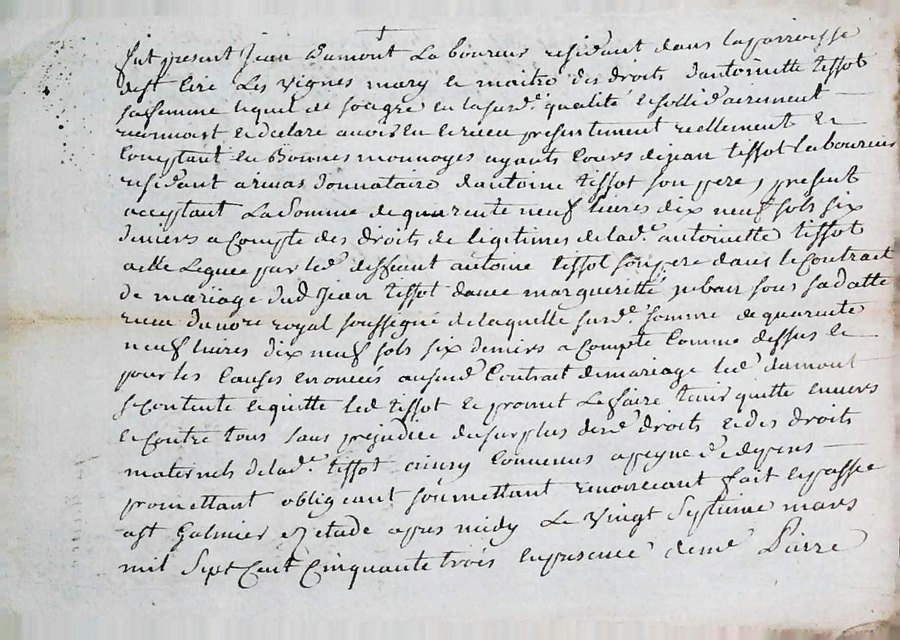 fut present Jean Damont Laboureur residant dans laparroisse
dest Cire Les vignes mary le maitre des droits dantoinette tissot
sa femme lequel de songre en lasurd.e qualité
reconnoit et declare avoir eu et receu presentement reellement et
Comptant en Bonnes monnoyes ayants Cours dejean tissot Laboureur
residant donnataire dantoine tissot son pere, present
acceptant La Somme dequarente neuf livres dix neuf sols six
deniers a Compte des droits de legitimes delad.e antoinette tissot
a elle Leguée par led. deffunt antoine tissot son pere dans leContrait
de mariage dud Jean tissot davec margueritte sous sa datte
receu du no.re royal soussigné delaquelle surd.e somme de quarente
neuf livres dix neuf sols six deniers a Compte Comme dessus et
pour les Causes enoncées ausurd. Contrait demariage led. damont
se Contente et quitte led tissot et promet Le faire tenir quitte envers
et Contre tous sans prejudice du surplus desd. droits et des droits
maternels delad.e tissot ainsy Convenus apeyne de depens
promettant obligeant soumettant renonceant fait et passé
a st Galmier etude apres midy Le vingt Septieme mars
mil Sept Cent Cinquante trois enpresence de me Pierre